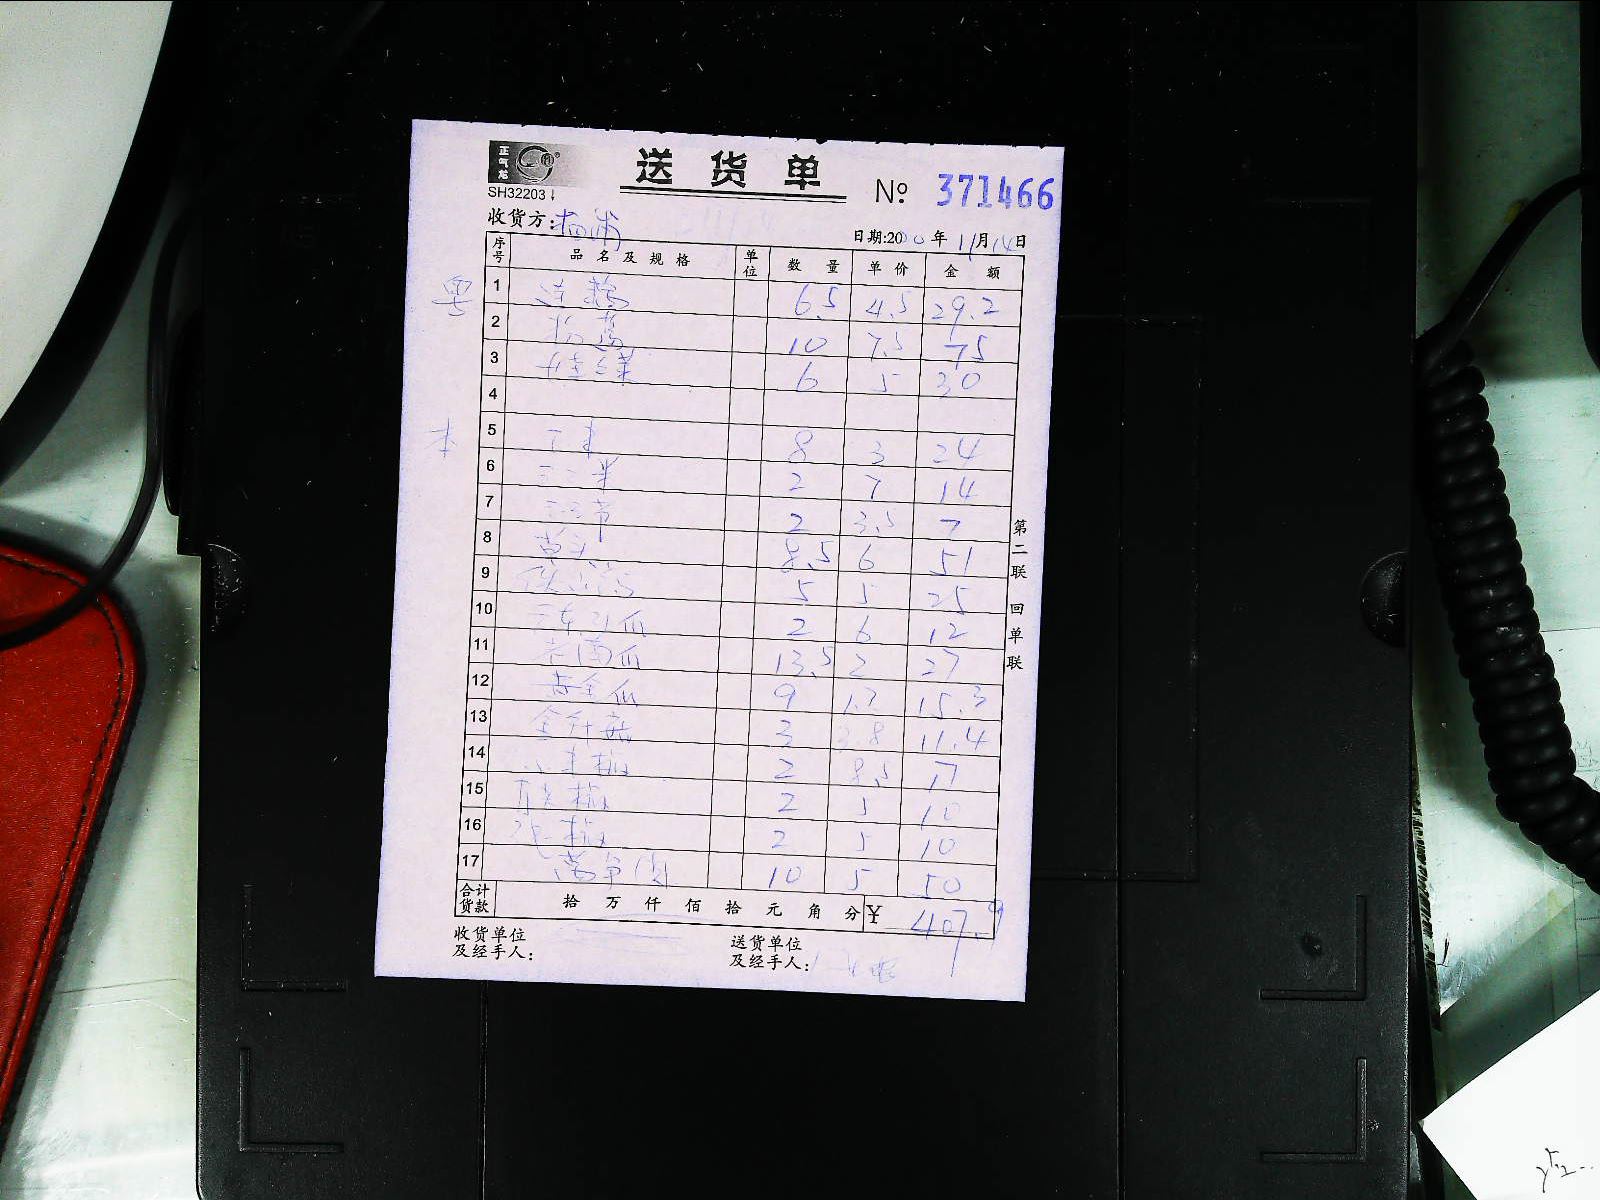 正气龙
送货单
SH32203
№ 371466
收货方: 杨浦
日期:20 年 11月14日
序号 品名及规格 单位 数量 单价 金额
粤
1 莲藕 6.5 4.5 29.2
2 粉葛 10 7.5 75
3 娃娃菜 6 5 30
4
本
5 8 3 24
6 2 7 14
7 2 3.5 7
8 8.5 6 51
9 5 5 25
10 2 6 12
11 老南瓜 13.5 2 27
12 黄金瓜 9 1.7 15.3
13 金针菇 3 3.8 11.4
14 小米椒 2 8.5 17
15 青尖椒 2 5 10
16 椒 2 5 10
17 10 5 50
合计货款 拾 万 仟 佰 拾 元 角 分 ¥ 407.9
收货单位及经手人:
送货单位及经手人:
第二联 回单联